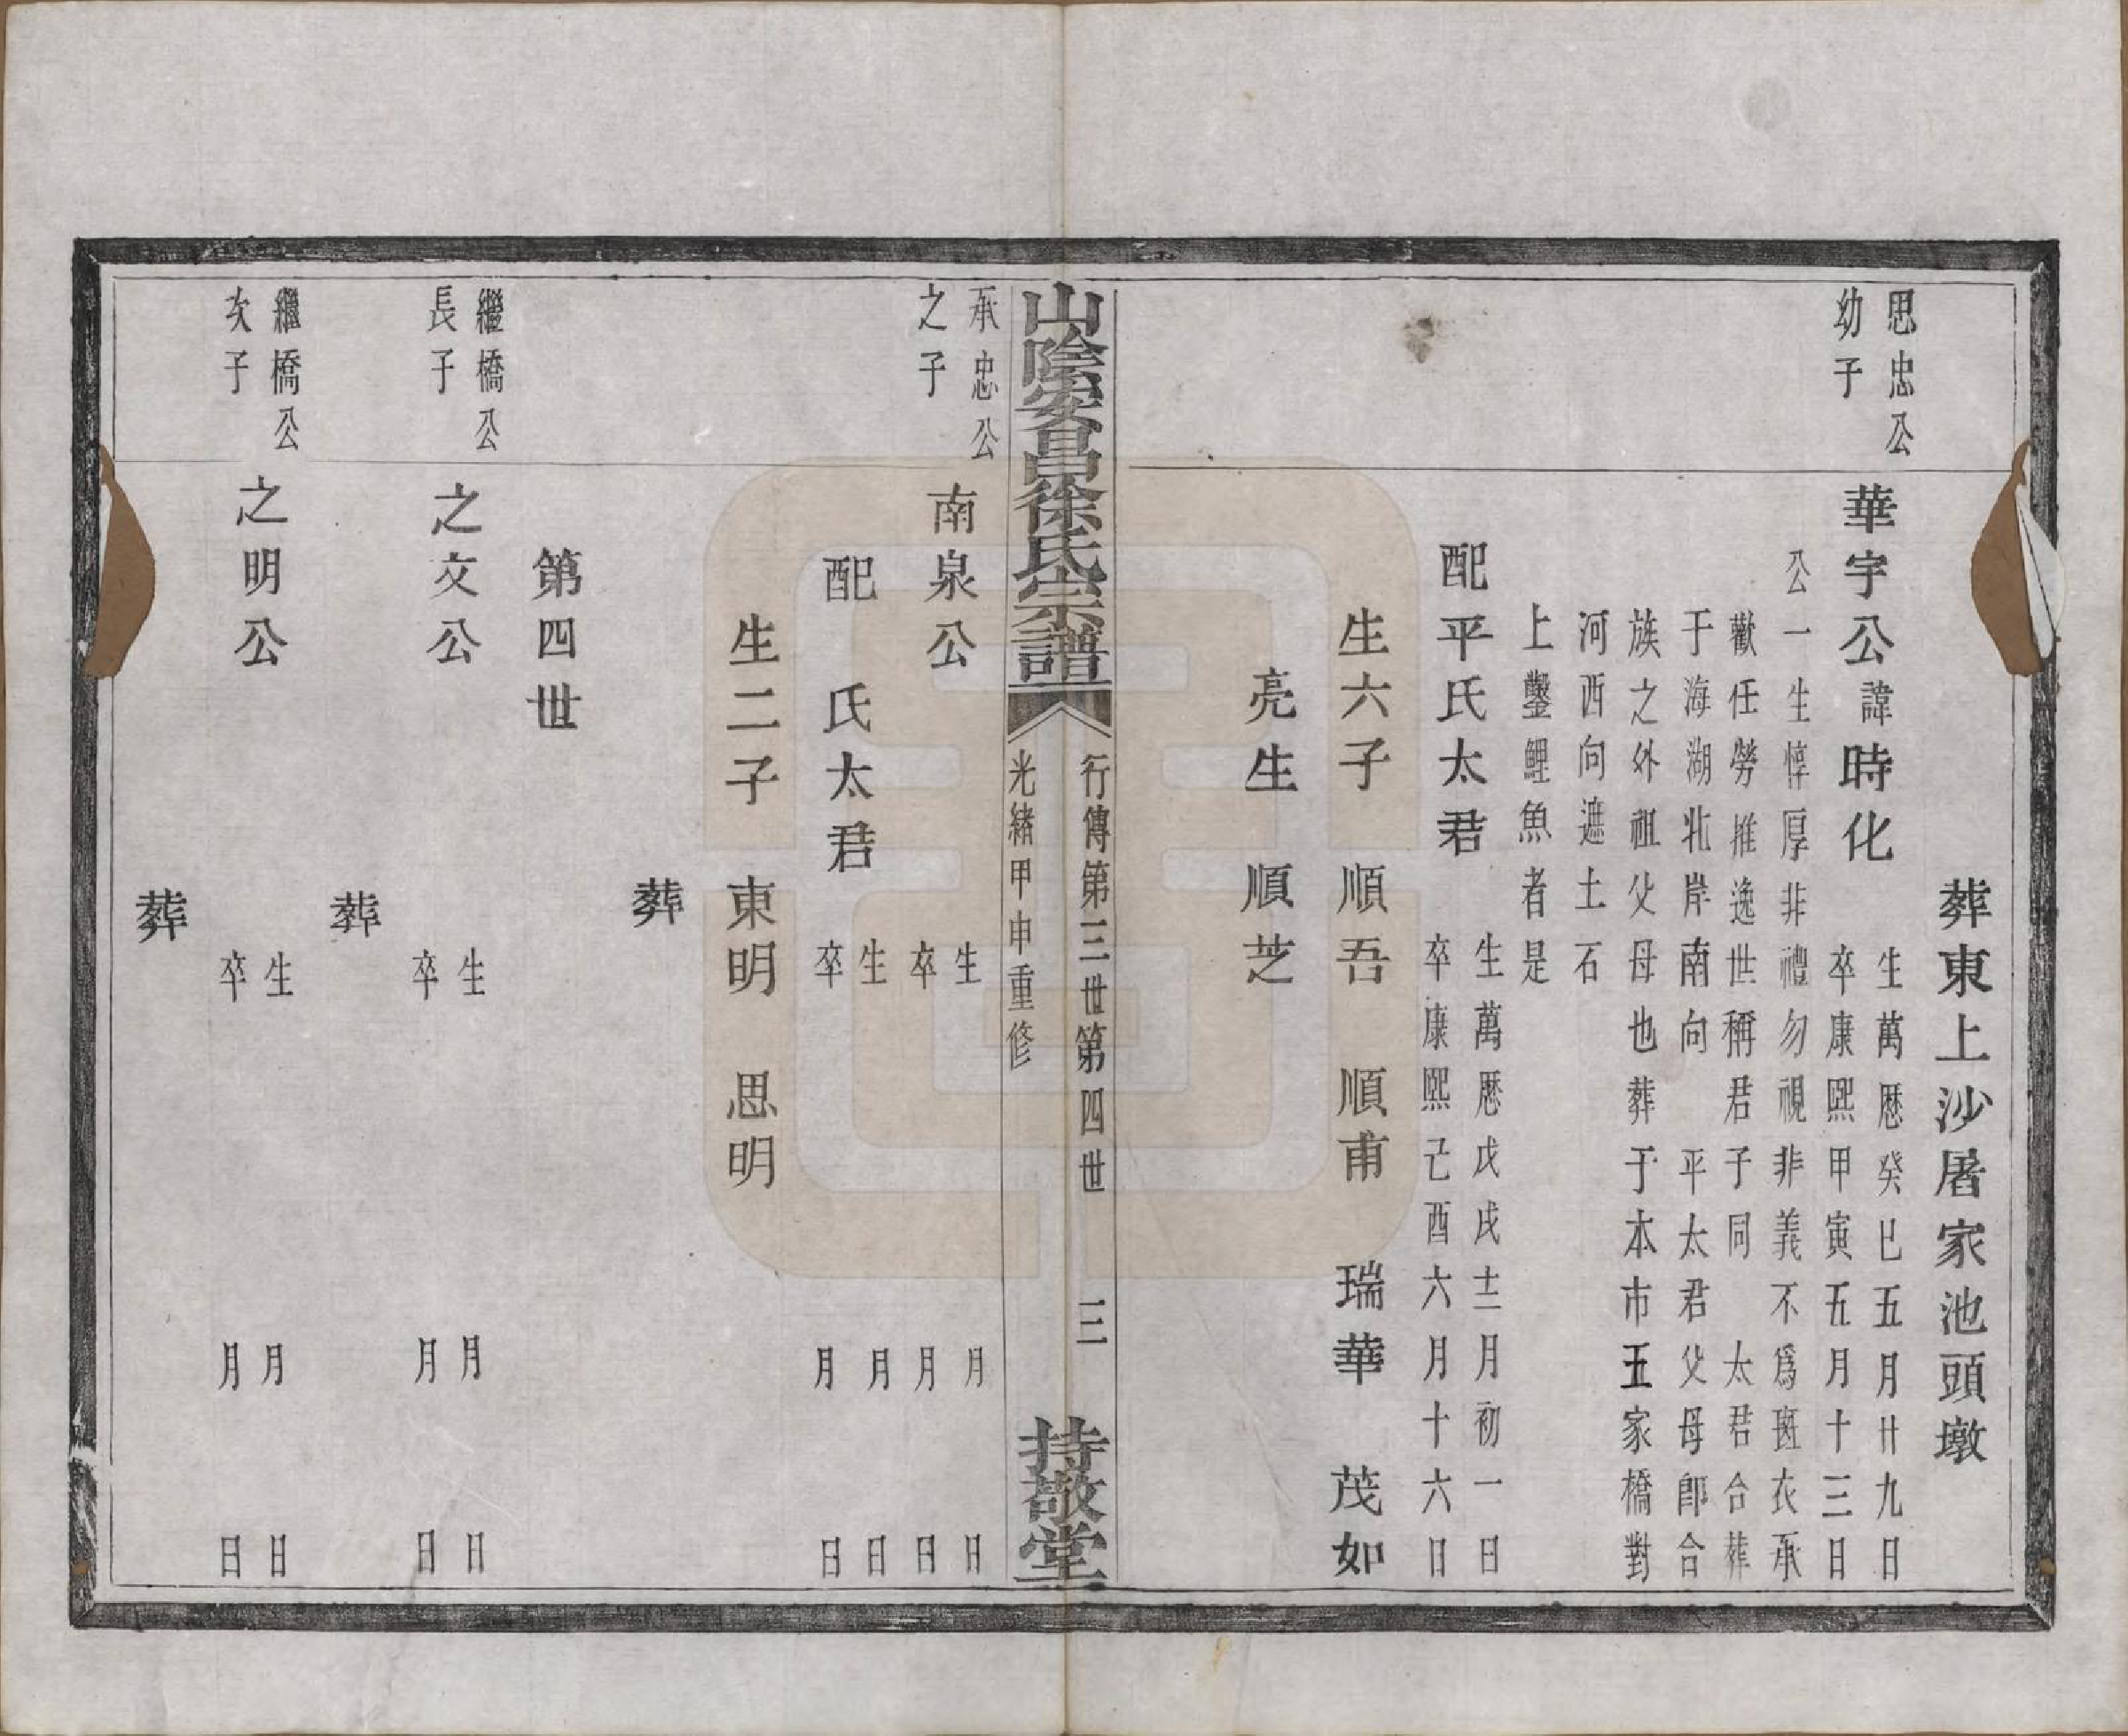 葬東上沙屠家池頭墩
思忠公
幼子
華宇公諱時化
生萬曆癸巳五月廿九日
卒康熙甲寅五月十三日
公一生惇厚非禮勿視非義不為斑衣承
歡任勞推逸世稱君子同 太君合葬
于海湖北岸南向 平太君父母郎合
族之外祖父母也葬于本市五家橋對
河西向遮土石
上鑿鯉魚者是
配平氏太君
生萬曆戊戌十二月初一日
卒康熙己酉六月十六日
生六子 順吾 順甫 瑞華 茂如
亮生 順芝
山陰安昌徐氏宗譜
行傳第三世第四世 三
光緒甲申重修
持敬堂
承忠公
之子
南泉公
生 月 日
卒 月 日
配 氏太君
生 月 日
卒 月 日
生二子 東明 思明
葬
第四世
繼橋公
長子
之文公
生 月 日
卒 月 日
葬
繼橋公
次子
之明公
生 月 日
卒 月 日
葬